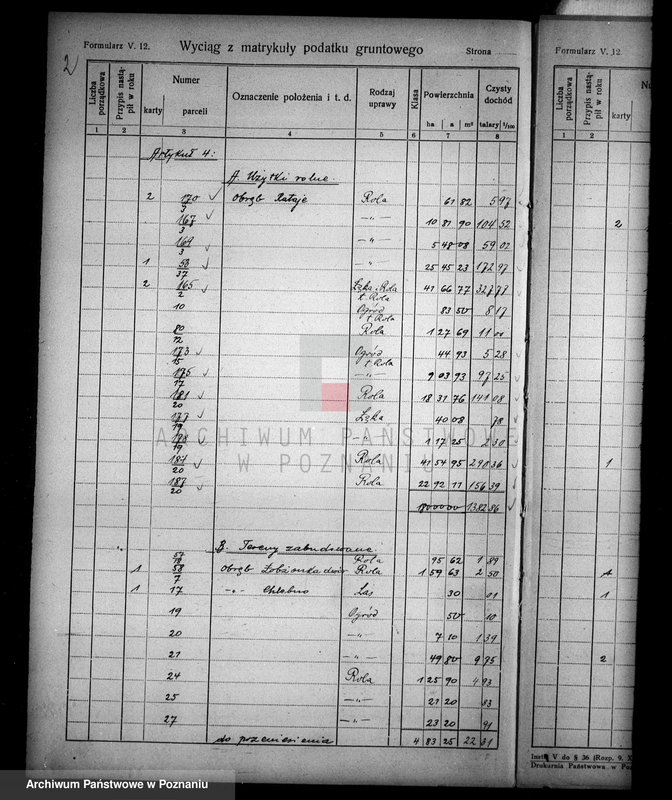 2
Formularz V. 12. Wyciąg z matrykuły podatku gruntowego Strona
Liczba porządkowa | Przypis nastąpił w roku | Numer karty parceli | Oznaczenie położenia i t. d. | Rodzaj uprawy | Klasa | Powierzchnia ha a m² | Czysty dochód talary ⁰/₁₀₀
1 2 3 4 5 6 7 8
Artykuł 4:
A. Użytki rolne.
2 170/3 Obręb Rataje Rola 61 82 5 97
167/3 -"- 10 81 90 104 52
169/3 -"- 5 48 08 59 02
1 53/37 -"- 25 45 23 172 97
2 165/2 Łąka, Rola t Rola 41 66 77 327 77
10 Ogród t Rola 83 50 8 17
80/12 Rola 1 27 69 11 01
173/15 Ogród t Rola 44 93 5 28
175/17 -"- 9 03 93 97 25
181/20 Rola 18 31 76 141 08
177/19 Łąka 40 08 78
178/19 -"- 1 17 25 2 30
187/20 Rola 41 54 95 290 36
187/20 Rola 22 92 11 156 39
180 00 00 1382 86
B. Tereny zabudowane.
57/18 Rola 95 62 1 89
1 58/7 Obręb Łobżonka dwór Rola 1 59 63 2 50
1 17 -"- Chlebno Las 30 01
19 Ogród 50 10
20 -"- 7 10 1 39
21 -"- 49 80 9 75
24 Rola 1 25 90 4 93
25 -"- 21 20 83
27 -"- 23 20 91
do przeniesienia 4 83 25 22 31
Formularz V. 12.
Liczba porządkowa | Przypis nastąpił w roku | karty
1 2
2
1
1
1
2
Instr. V do § 36 (Rozp. 9. X
Drukarnia Państwowa w Po
ARCHIWUM PAŃSTWOWE
W POZNANIU
Archiwum Państwowe w Poznaniu